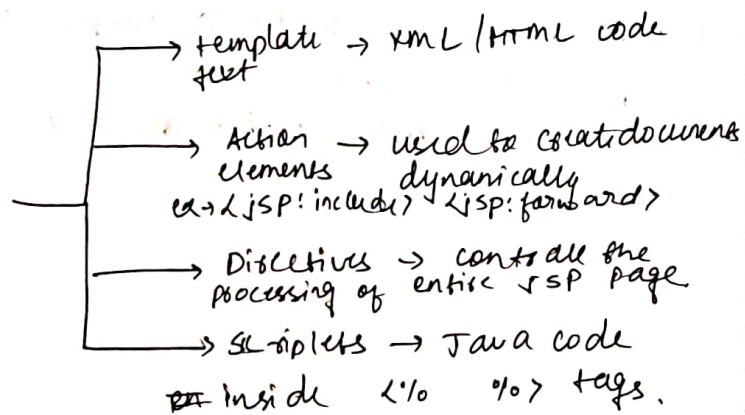 → template → XML / HTML code
text
→ Action → used to create documents
elements dynamically
ex → <jSP: include> <jsp: forward>
→ Directives → controll the
processing of entire JSP page.
→ Scriplets → Java code
inside <% %> tags.